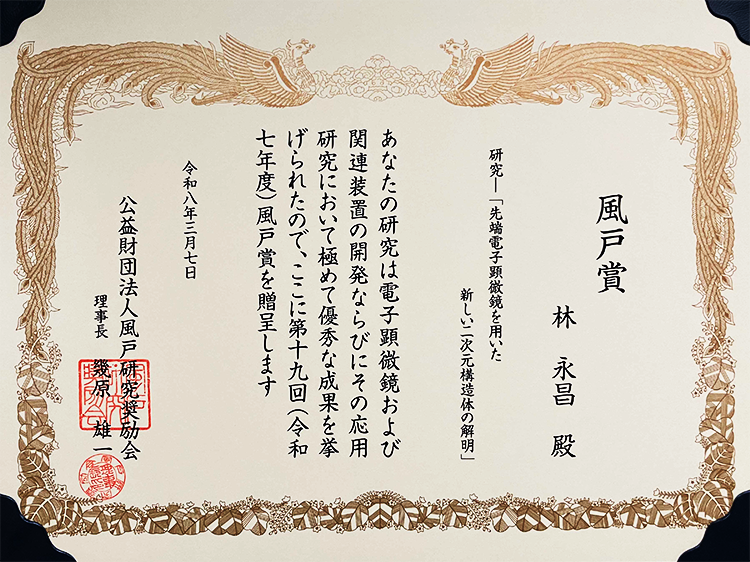 風戸賞
林　永昌　殿
研究―「先端電子顕微鏡を用いた
新しい二次元構造体の解明」
あなたの研究は電子顕微鏡および
関連装置の開発ならびにその応用
研究において極めて優秀な成果を挙
げられたので、ここに第十九回(令和
七年度)風戸賞を贈呈します
令和八年三月七日
公益財団法人風戸研究奨励会
理事長　幾原　雄一